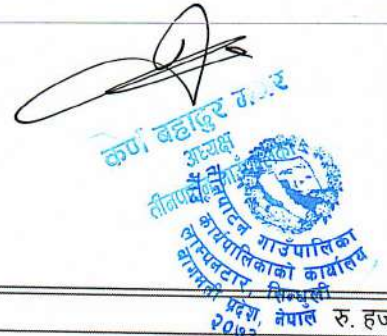 कर्ण बहादुर
अध्यक्ष
तीनपाटन गाउँपालिका
कार्यपालिकाको कार्यालय
लाम्पनटार, सिन्धुली
बागमती प्रदेश, नेपाल
२०७३
रु. हज